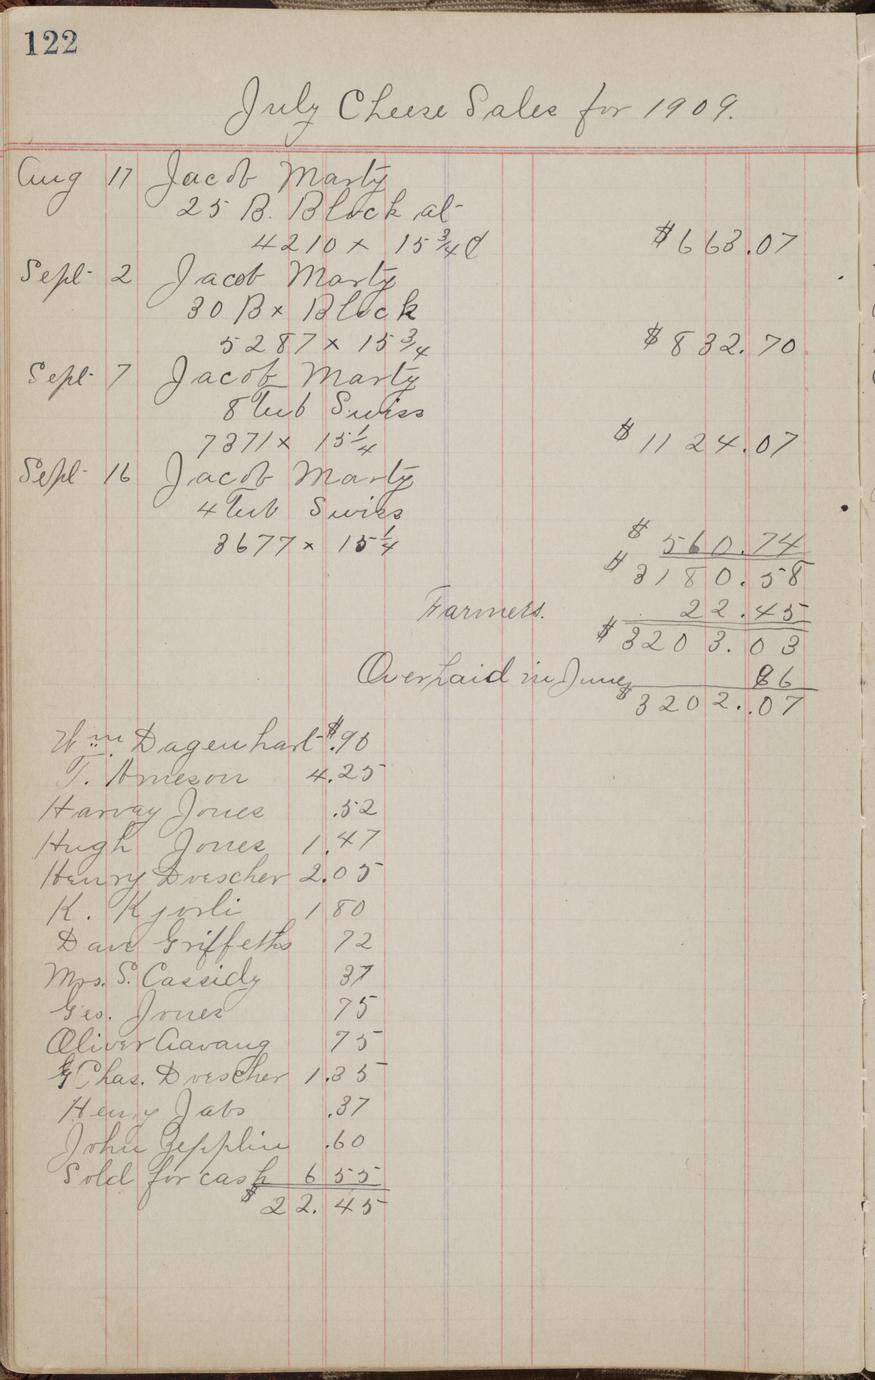 122
July Cheese Sales for 1909.
Aug 17 Jacob Marty
25 B. Block at
4210 x 15 3/4 ¢ $663.07
Sept 2 Jacob Marty
30 Bx Block
5287 x 15 3/4 $832.70
Sept 7 Jacob Marty
8 Tub Swiss
7371 x 15 1/4 $1124.07
Sept 16 Jacob Marty
4 Tub Swiss
3677 x 15 1/4 $560.74
$3180.58
Farmers. 22.45
$3203.03
Overpaid in June 86
$3202..07
Wm Dagenhart $.90
T. Arneson 4.25
Harvay Jones .52
Hugh Jones 1.47
Henry Drescher 2.05
K. Kjorli 1 80
Dave Griffeths 72
Mrs. S. Cassidy 37
Geo. Jones 75
Oliver Aavang 75
Chas. Drescher 1.35
Henry Jabs .37
John Zepplin .60
Sold for cash 6 55
$22.45